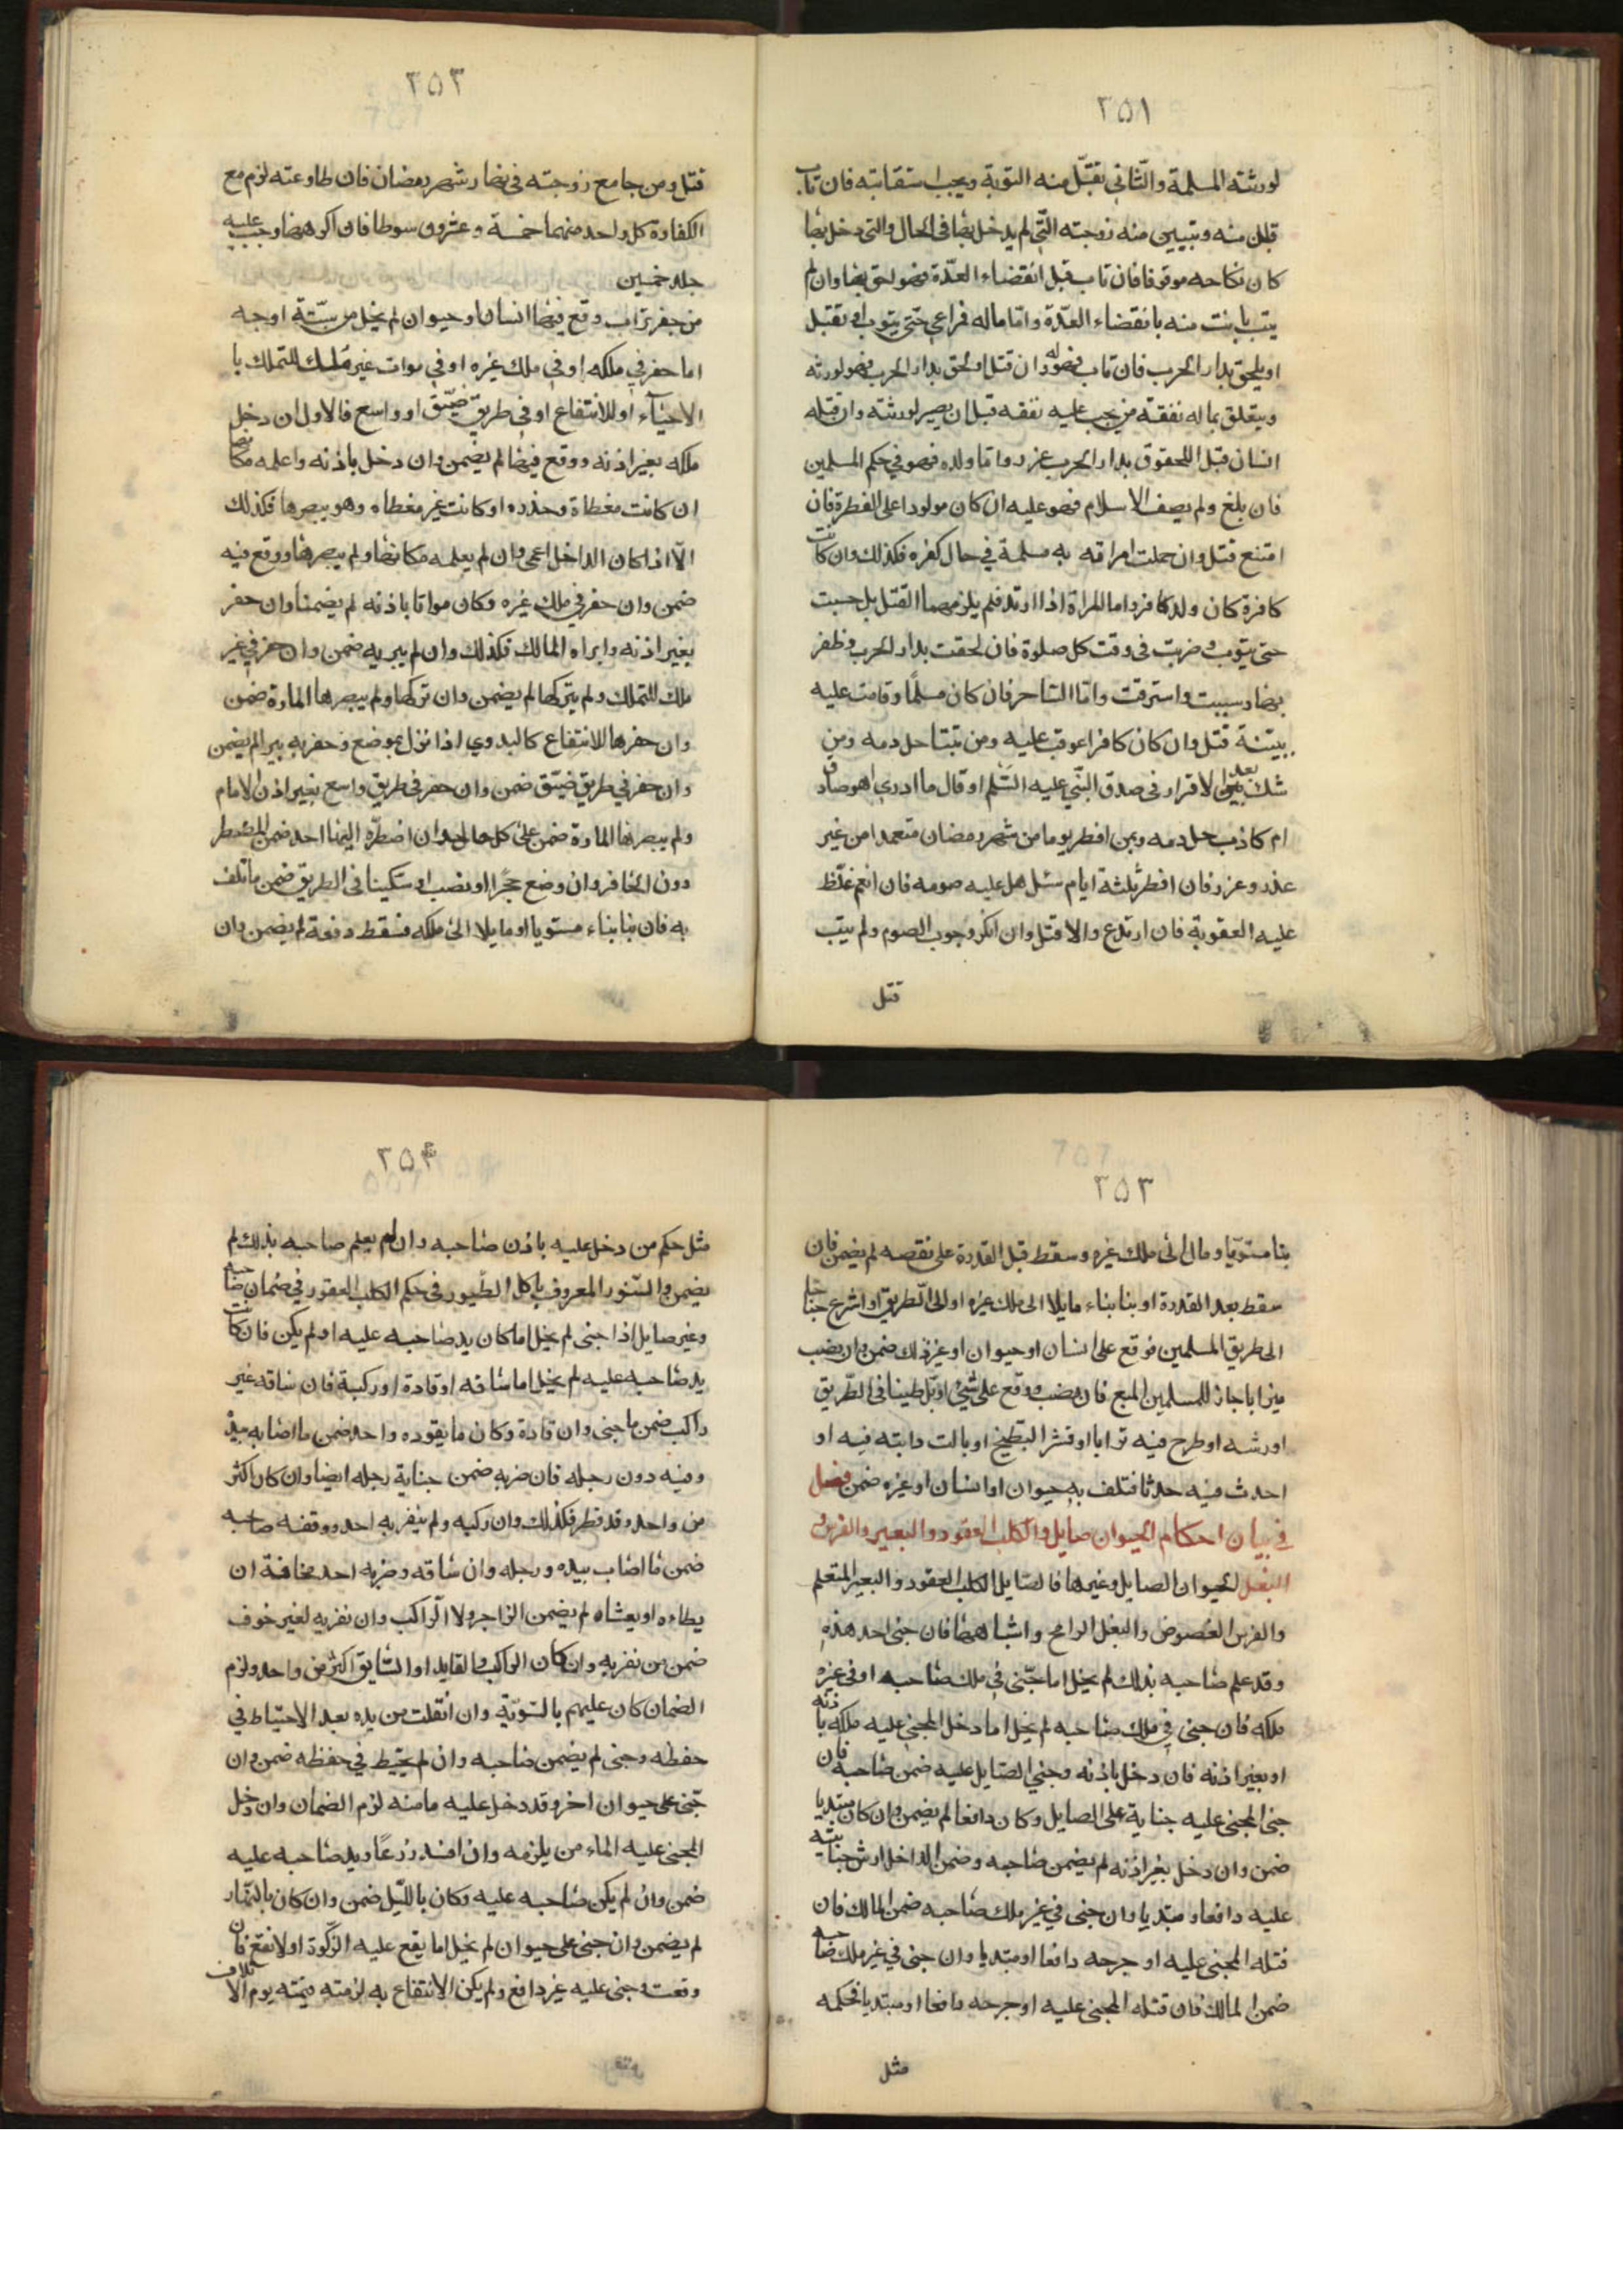 ٢٥١
لورثته المسلمة والثانى تقبّل منه التوبة ويجب استتابته فان تاب
قبل منه وتبين منه زوجته الّتى لم يدخل بها فى الحال والتى دخل بها
كان نكاحه موقوفا فان تاب قبل انقضاء العدّة فهو احق بها وان لم
يتب بانت منه بانقضاء العدّة وامّا ماله فراعى حتى يتوب او تقتل
او يلحق بدار الحرب فان تاب فهو له وان قتل او لحق بدار الحرب فهو لورثته
ويتعلق بماله نفقة من يجب عليه نفقه قبل ان يصير لورثته وان قتله
انسان قبل اللحقوق بدار الحرب عزر واما ولده فهو فى حكم المسلمين
فان بلغ ولم يصف الاسلام فهو عليه ان كان مولودا على الفطرة فان
امتنع قتل وان حملت امراته به مسلمة فى حال كفره فكذلك وان كانت
كافرة كان ولده كافرا واما المراة اذا ارتد فلم يلزمهما القتل بل حبست
حتى يتوب وضربت فى وقت كل صلوة فان لحقت بدار الحرب وظفر
بها وسبيت واسترقت وامّا الساحر فان كان مسلمًا وقامت عليه
بيّنة قتل وان كان كافرا عوقب عليه ومن تنبّا حل دمه ومن
شك بعد الاقرار فى صدق النبّى عليه السّلم او قال ما ادرى اهو صادق
ام كاذب حل دمه ومن افطر يوما من شهر رمضان متعمدا من غير
عذر وعزر فان افطر ثلثة ايام سئل هل عليه صومه فان انعم غلّظ
عليه العقوبة فان ارتدع والا قتل وان انكر وجوب الصوم ولم يتب
قتل
٢٥٢
قتل ومن جامع زوجته فى نهار شهر رمضان فان طاوعته لزم مع
الكفارة كل واحد منهما خمسة وعشرون سوطا فان اكرهها وجب عليه
جلد خمسين
من حفر تراب وقع فيها انسان او حيوان لم يخل من ستّة اوجه
اما حفر فى ملكه او فى ملك غيره او فى موات غير ملك للتملك با
الاحياء او للانتفاع او فى طريق ضيّق او واسع فالاول ان دخل
ملكه بغير اذنه ووقع فيها لم يضمن وان دخل باذنه واعلمه مكانها
ان كانت مغطاة وحذره او كانت غير مغطاه وهو يبصرها فكذلك
الّا اذا كان الداخل اعمى وان لم يعلمه مكانها ولم يبصرها ووقع فيه
ضمن وان حفر فى ملك غيره وكان مواتا باذنه لم يضمنا وان حفر
بغير اذنه وابراه المالك فكذلك وان لم يبريه ضمن وان حفر فى غير
ملك للتملك ولم يتركها لم يضمن وان تركها ولم يبصرها المارة ضمن
وان حفرها للانتفاع كالبدوي اذا نزل بموضع وحفر به بيرا لم يضمن
وان حفر فى طريق ضيّق ضمن وان حفر فى طريق واسع بغير اذن الامام
ولم يبصرها المارة ضمن على كل حال وان اضطرّه اليها احد ضمن المضطر
دون الحافر وان وضع حجرًا او نصب سكينا فى الطريق ضمن ما تلف
به فان بنا بناء مستويا او مايلا الى ملكه فسقط دفعة لم يضمن وان
٢٥٣
بنا مستويّا ومال الى ملك غيره وسقط قبل القدرة على نقصه لم يضمن فان
سقط بعد القدرة او بنا بناء مايلا الى ملك غيره او الى الطريق او اشرع جناحا
الى طريق المسلمين فوقع على انسان او حيوان او غير ذلك ضمن وان نصب
ميزابا جاز للمسلمين المنع فان نصب ووقع على شئ او بّل طينا فى الطّريق
او رشه او طرح فيه ترابا او قشر البطيخ او بالت دابته فيه او
احدث فيه حدثا فتلف به حيوان او انسان او غيره ضمن فصل
فى بيان احكام الحيوان صايل والكلب العقور والبعير والفرس و
البغل الحيوان الصايل وغيرها فالصايل الكلب العقور والبعير المتعلم
والفرس العضوض والبغل الرامح واشباهها فان جنى احد هذه
وقد علم صاحبه بذلك لم يخل اما جنى فى ملك صاحبه او فى غيره
ملكه فان جنى فى ملك صاحبه لم يخل اما دخل المجنى عليه ملكه باذنه
او بغير اذنه فان دخل باذنه وجنى الصايل عليه ضمن صاحبه فان
جنى المجنى عليه جناية على الصايل وكان دافعا لم يضمن وان كان مبتديا
ضمن وان دخل بغير اذنه لم يضمن صاحبه وضمن الداخل ارش جنايته
عليه دافعا ومبتديا وان جنى فى غير ملك صاحبه ضمن المالك فان
قتله المجنى عليه او جرحه دافعا او مبتديا وان جنى فى غير ملك صاحبه
ضمن المالك فان قتله المجنى عليه او جرحه دافعا او مبتديا فحكمه
مثل
٢٥٤
مثل حكم من دخل عليه باذن صاحبه وان لم يعلم صاحبه بذلك لم
يضمن والسّنور المعروف باكل الطّيور فى حكم الكلب العقور فى ضمان صاحبه
وغير صايل اذا جنى لم يخل اما كان يد صاحبه عليه او لم يكن فان كانت
يد صاحبه عليه لم يخل اما ساقه او قادة او ركبة فان ساقه غير
راكب ضمن ما جنى وان قادة وكان ما يقوده واحد ضمن ما اصابه بيدْ
وفيه دون رجله فان ضربه ضمن جناية رجله ايضا وان كان اكثر
من واحد وقد قطر فكذلك وان ركبه ولم ينفر به احد ووقفه صاحبه
ضمن ما اصاب بيده ورجله وان ساقه وضربه احد مخافة ان
يطاءه او يغشاه لم يضمن الزاجر ولا الّراكب وان نفر به لغير خوف
ضمن من نفر به وان كان الراكب والقايد او السايق اكثر من واحد ولزم
الضمان كان عليهم بالسّويّة وان انفلت من يده بعد الاحتياط فى
حفظه وجنى لم يضمن صاحبه وان لم يحتط فى حفظه ضمن وان
جنى على حيوان اخر وقد دخل عليه مامنه لزم الضمان وان دخل
المجنى عليه الماء من يلزمه وان افسد زرعًا ويد صاحبه عليه
ضمن وان لم يكن صاحبه عليه وكان بالليّل ضمن وان كان بالنّهار
لم يضمن وان جنى على حيوان لم يخل اما يقع عليه الزكوة او لا تقع فان
وقعت وجنى عليه غير دافع ولم يكن الانتفاع به لزمته قيمته يوم الاتلاف